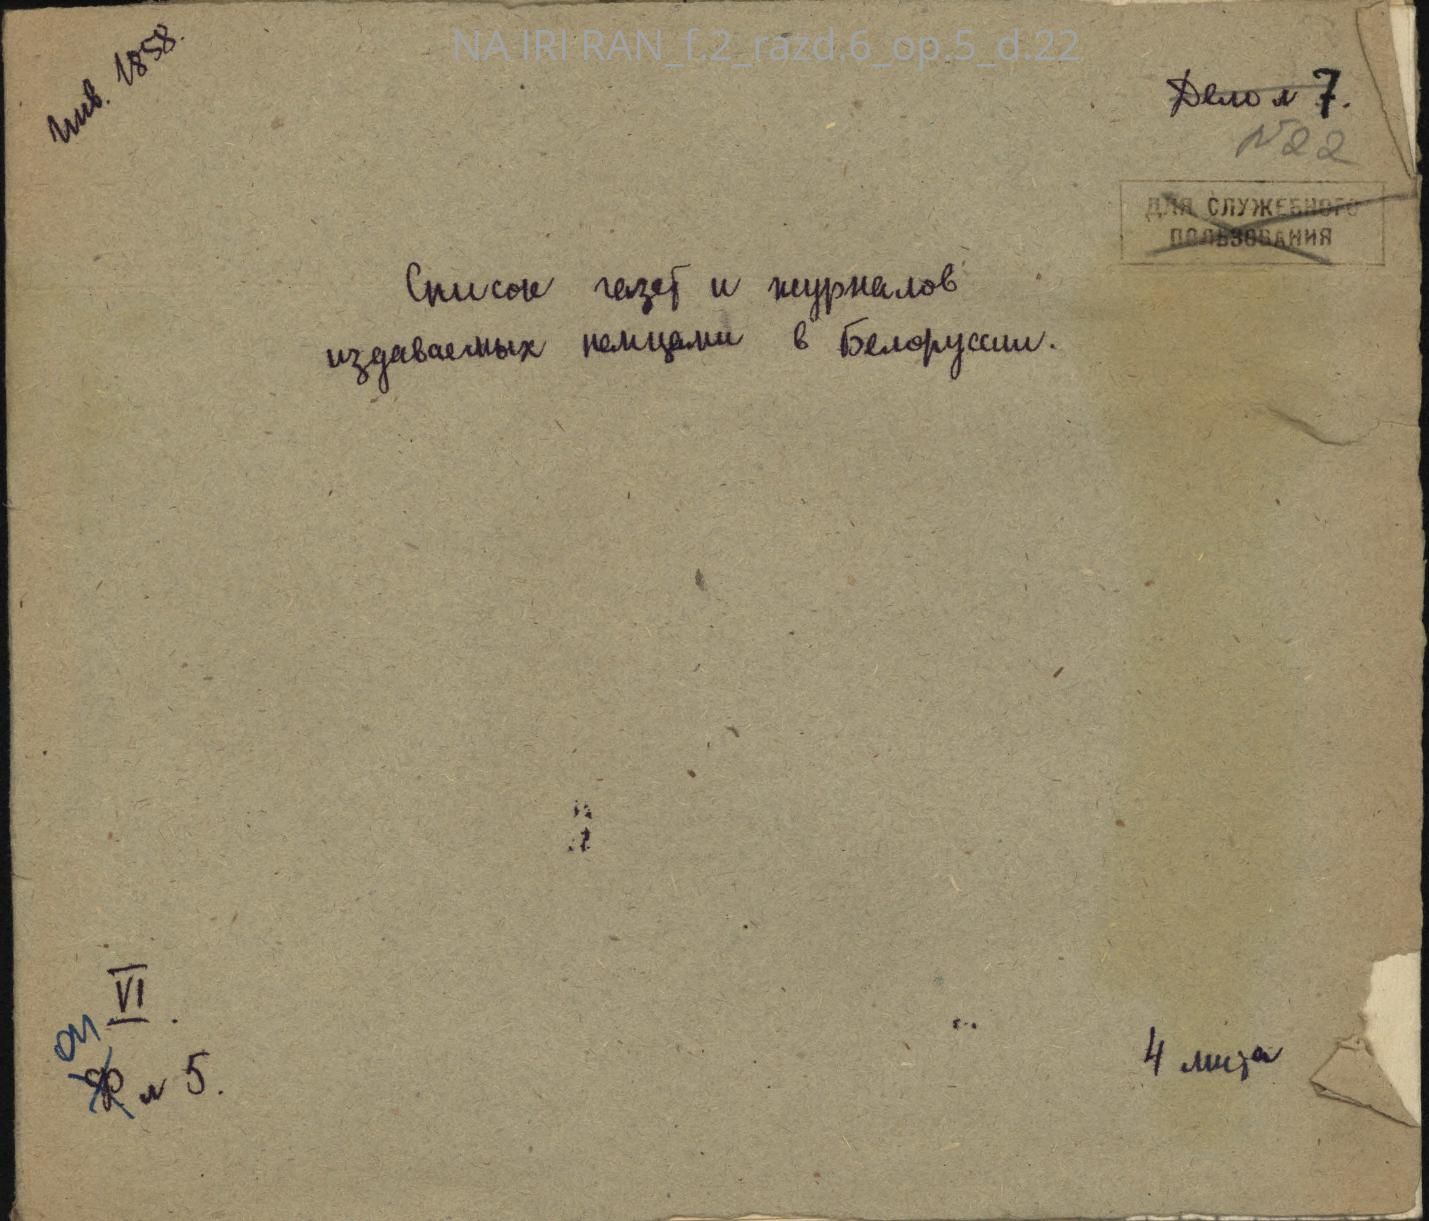 NA IRI RAN_f.2_razd.6_op.5_d.22
Инв. 1858.
Дело № 7.
№22
ДЛЯ СЛУЖЕБНОГО
ПОЛЬЗОВАНИЯ
Список газет и журналов
издаваемых немцами в Белоруссии.
VI.
оп
№ 5.
4 листа